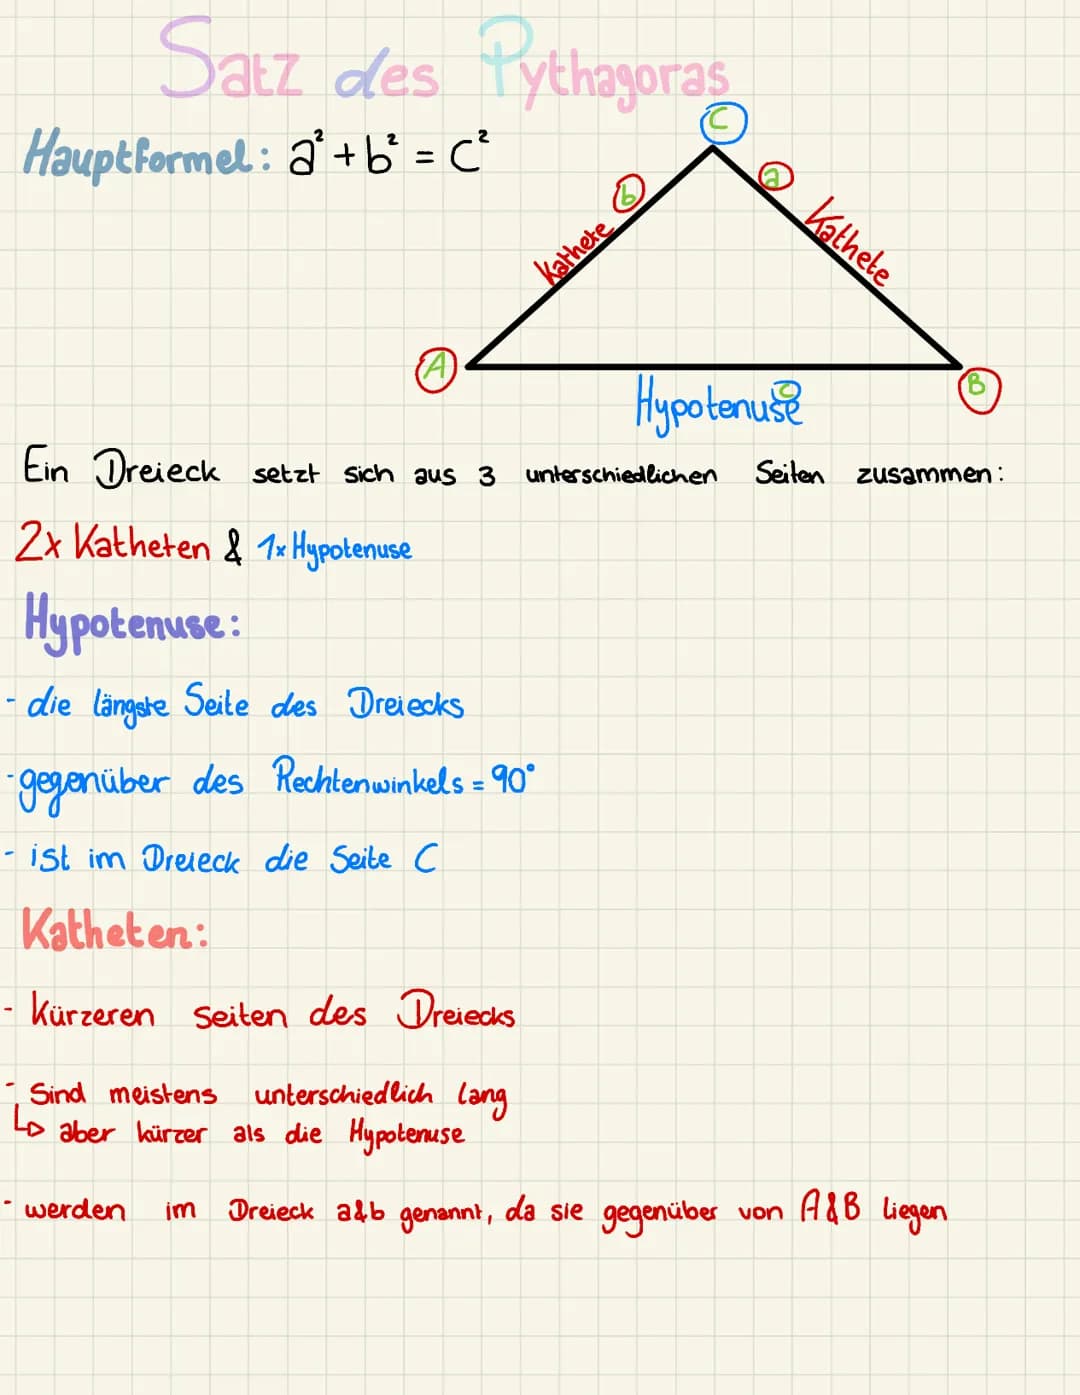 Satz des Pythagoras
Hauptformel: a² + b² = c²
C
b
a
Kathete
Kathete
A
B
c
Hypotenuse
Ein Dreieck setzt sich aus 3 unterschiedlichen Seiten zusammen:
2x Katheten & 1x Hypotenuse
Hypotenuse:
- die längste Seite des Dreiecks
- gegenüber des Rechtenwinkels = 90°
- ist im Dreieck die Seite C
Katheten:
- Kürzeren Seiten des Dreiecks
- Sind meistens unterschiedlich lang
↳ aber kürzer als die Hypotenuse
- werden im Dreieck a&b genannt, da sie gegenüber von A&B liegen